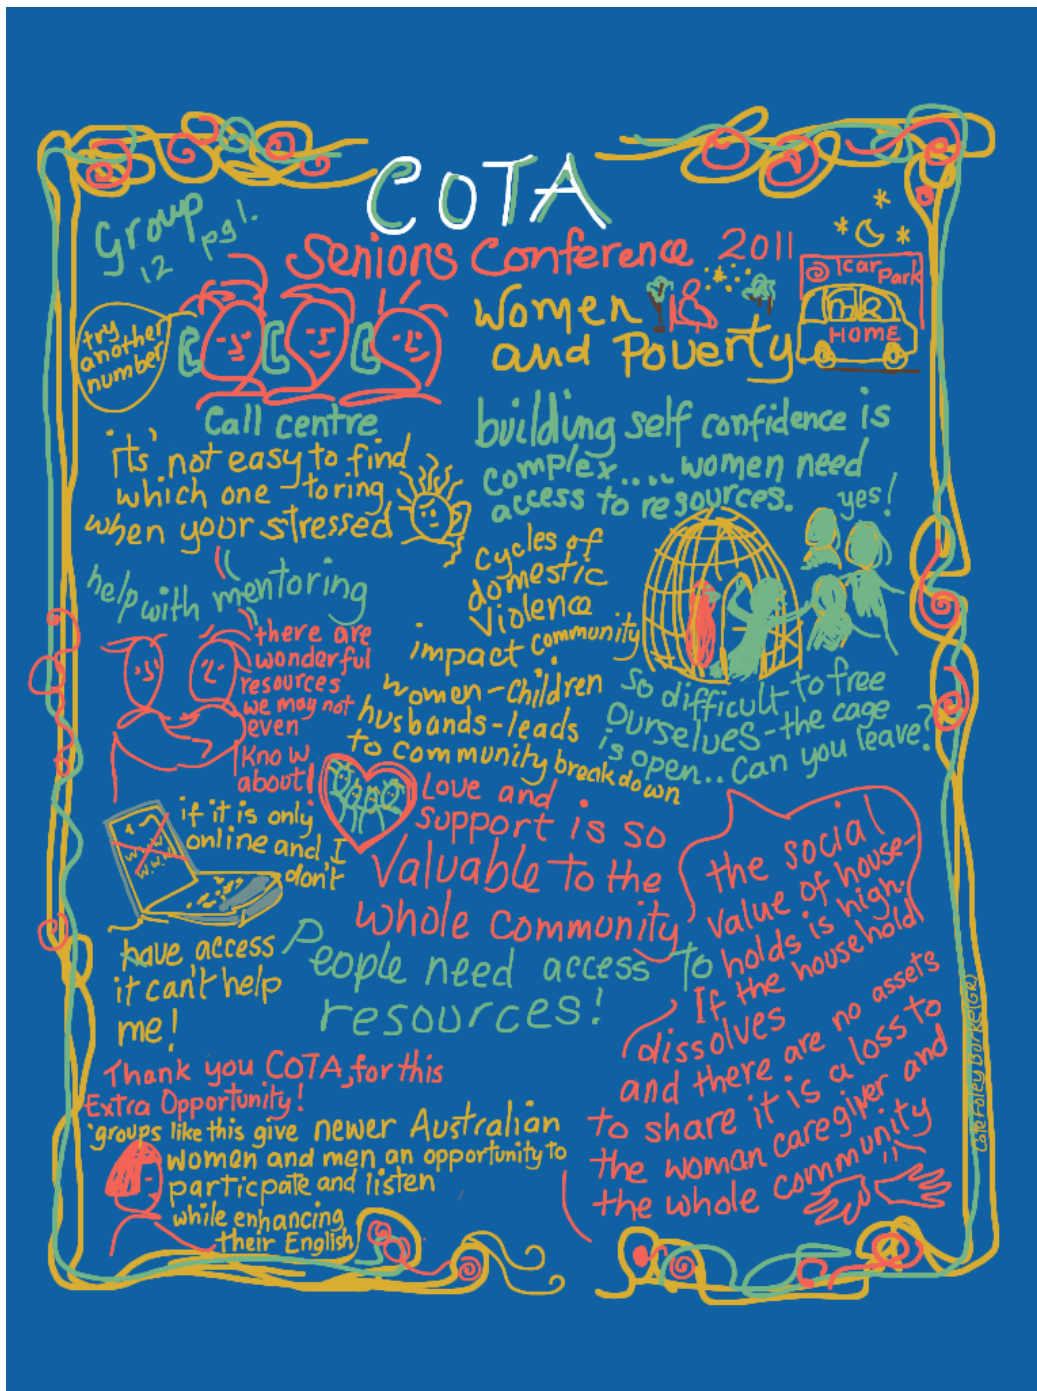 COTA
Group pg 1.
12
Seniors Conference 2011
Women
and Poverty
1 car Park
HOME
try
another
number
Call centre
it's not easy to find
which one to ring
when your stressed
building self confidence is
complex..... women need
access to resources.
yes!
help with mentoring
there are
wonderful
resources
we may not
even
know
about!
cycles of
domestic
violence
impact community
women - children
husbands - leads
to community breakdown
so difficult to free
ourselves - the cage
is open.. Can you leave?
w.w.w
w.w.w.
if it is only
online and I
don't
have access
it can't help
me!
Love and
support is so
valuable to the
whole community
People need access to
resources!
the social
value of house-
holds is high.
If the household
dissolves
and there are no assets
to share it is a loss to
the woman caregiver and
the whole community
Thank you COTA, for this
Extra Opportunity!
'groups like this give newer Australian
women and men an opportunity to
particpate and listen
while enhancing
their English